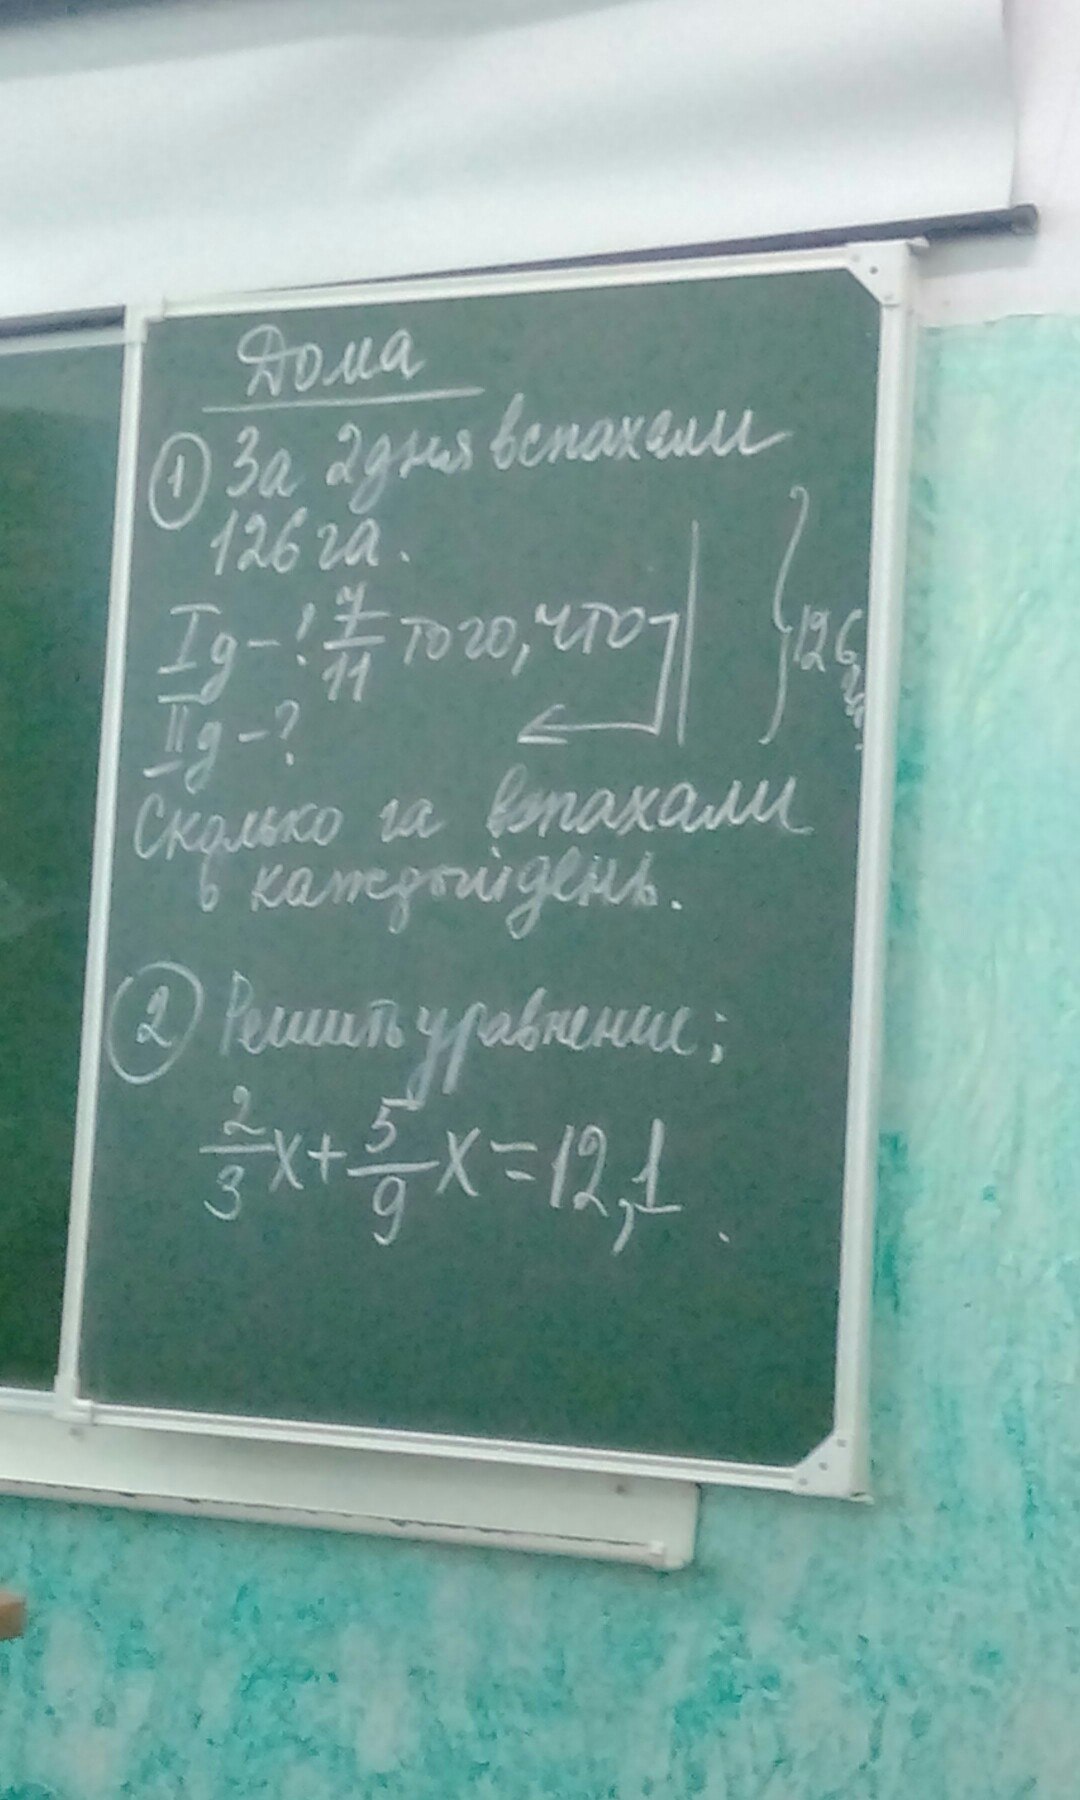 Дома
① За 2 дня вспахали
126 га.
I д - ? 7/11 того, что
} 126 га
II д - ?
Сколько га вспахали
в каждый день.
② Решить уравнение:
2/3 x + 5/9 x = 12,1